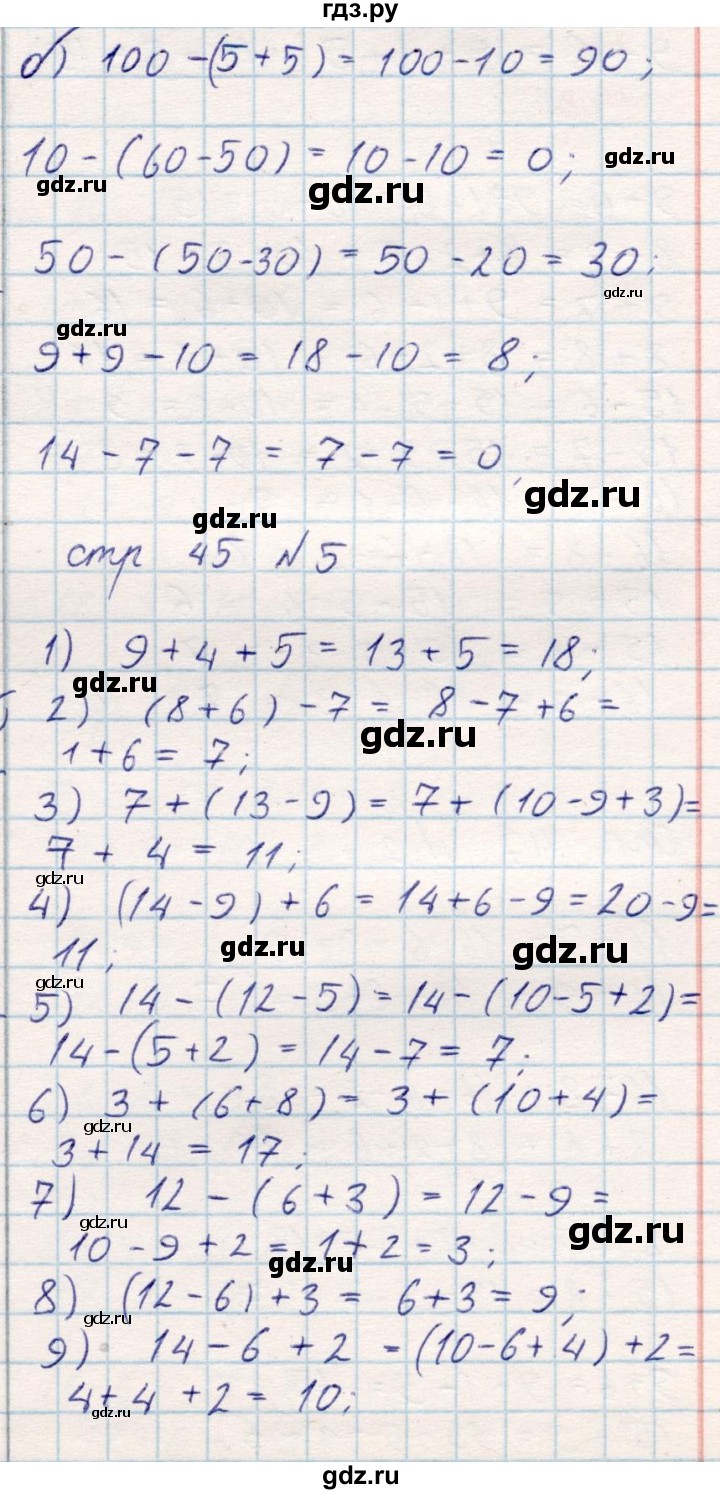 гдз.ру
б) 100 - (5 + 5) = 100 - 10 = 90;
10 - (60 - 50) = 10 - 10 = 0;
gdz.ru
gdz.ru
gdz.ru
50 - (50 - 30) = 50 - 20 = 30;
gdz.ru
gdz.ru
9 + 9 - 10 = 18 - 10 = 8;
14 - 7 - 7 = 7 - 7 = 0
gdz.ru
gdz.ru
стр 45 №5
1) 9 + 4 + 5 = 13 + 5 = 18;
gdz.ru
2) (8 + 6) - 7 = 8 - 7 + 6 =
gdz.ru
1 + 6 = 7;
3) 7 + (13 - 9) = 7 + (10 - 9 + 3) =
7 + 4 = 11;
gdz.ru
4) (14 - 9) + 6 = 14 + 6 - 9 = 20 - 9 =
11;
gdz.ru
gdz.ru
gdz.ru
5) 14 - (12 - 5) = 14 - (10 - 5 + 2) =
14 - (5 + 2) = 14 - 7 = 7;
6) 3 + (6 + 8) = 3 + (10 + 4) =
gdz.ru
3 + 14 = 17;
7) 12 - (6 + 3) = 12 - 9 =
gdz.ru
gdz.ru
10 - 9 + 2 = 1 + 2 = 3;
gdz.ru
8) (12 - 6) + 3 = 6 + 3 = 9;
gdz.ru
9) 14 - 6 + 2 = (10 - 6 + 4) + 2 =
4 + 4 + 2 = 10;
gdz.ru
gdz.ru